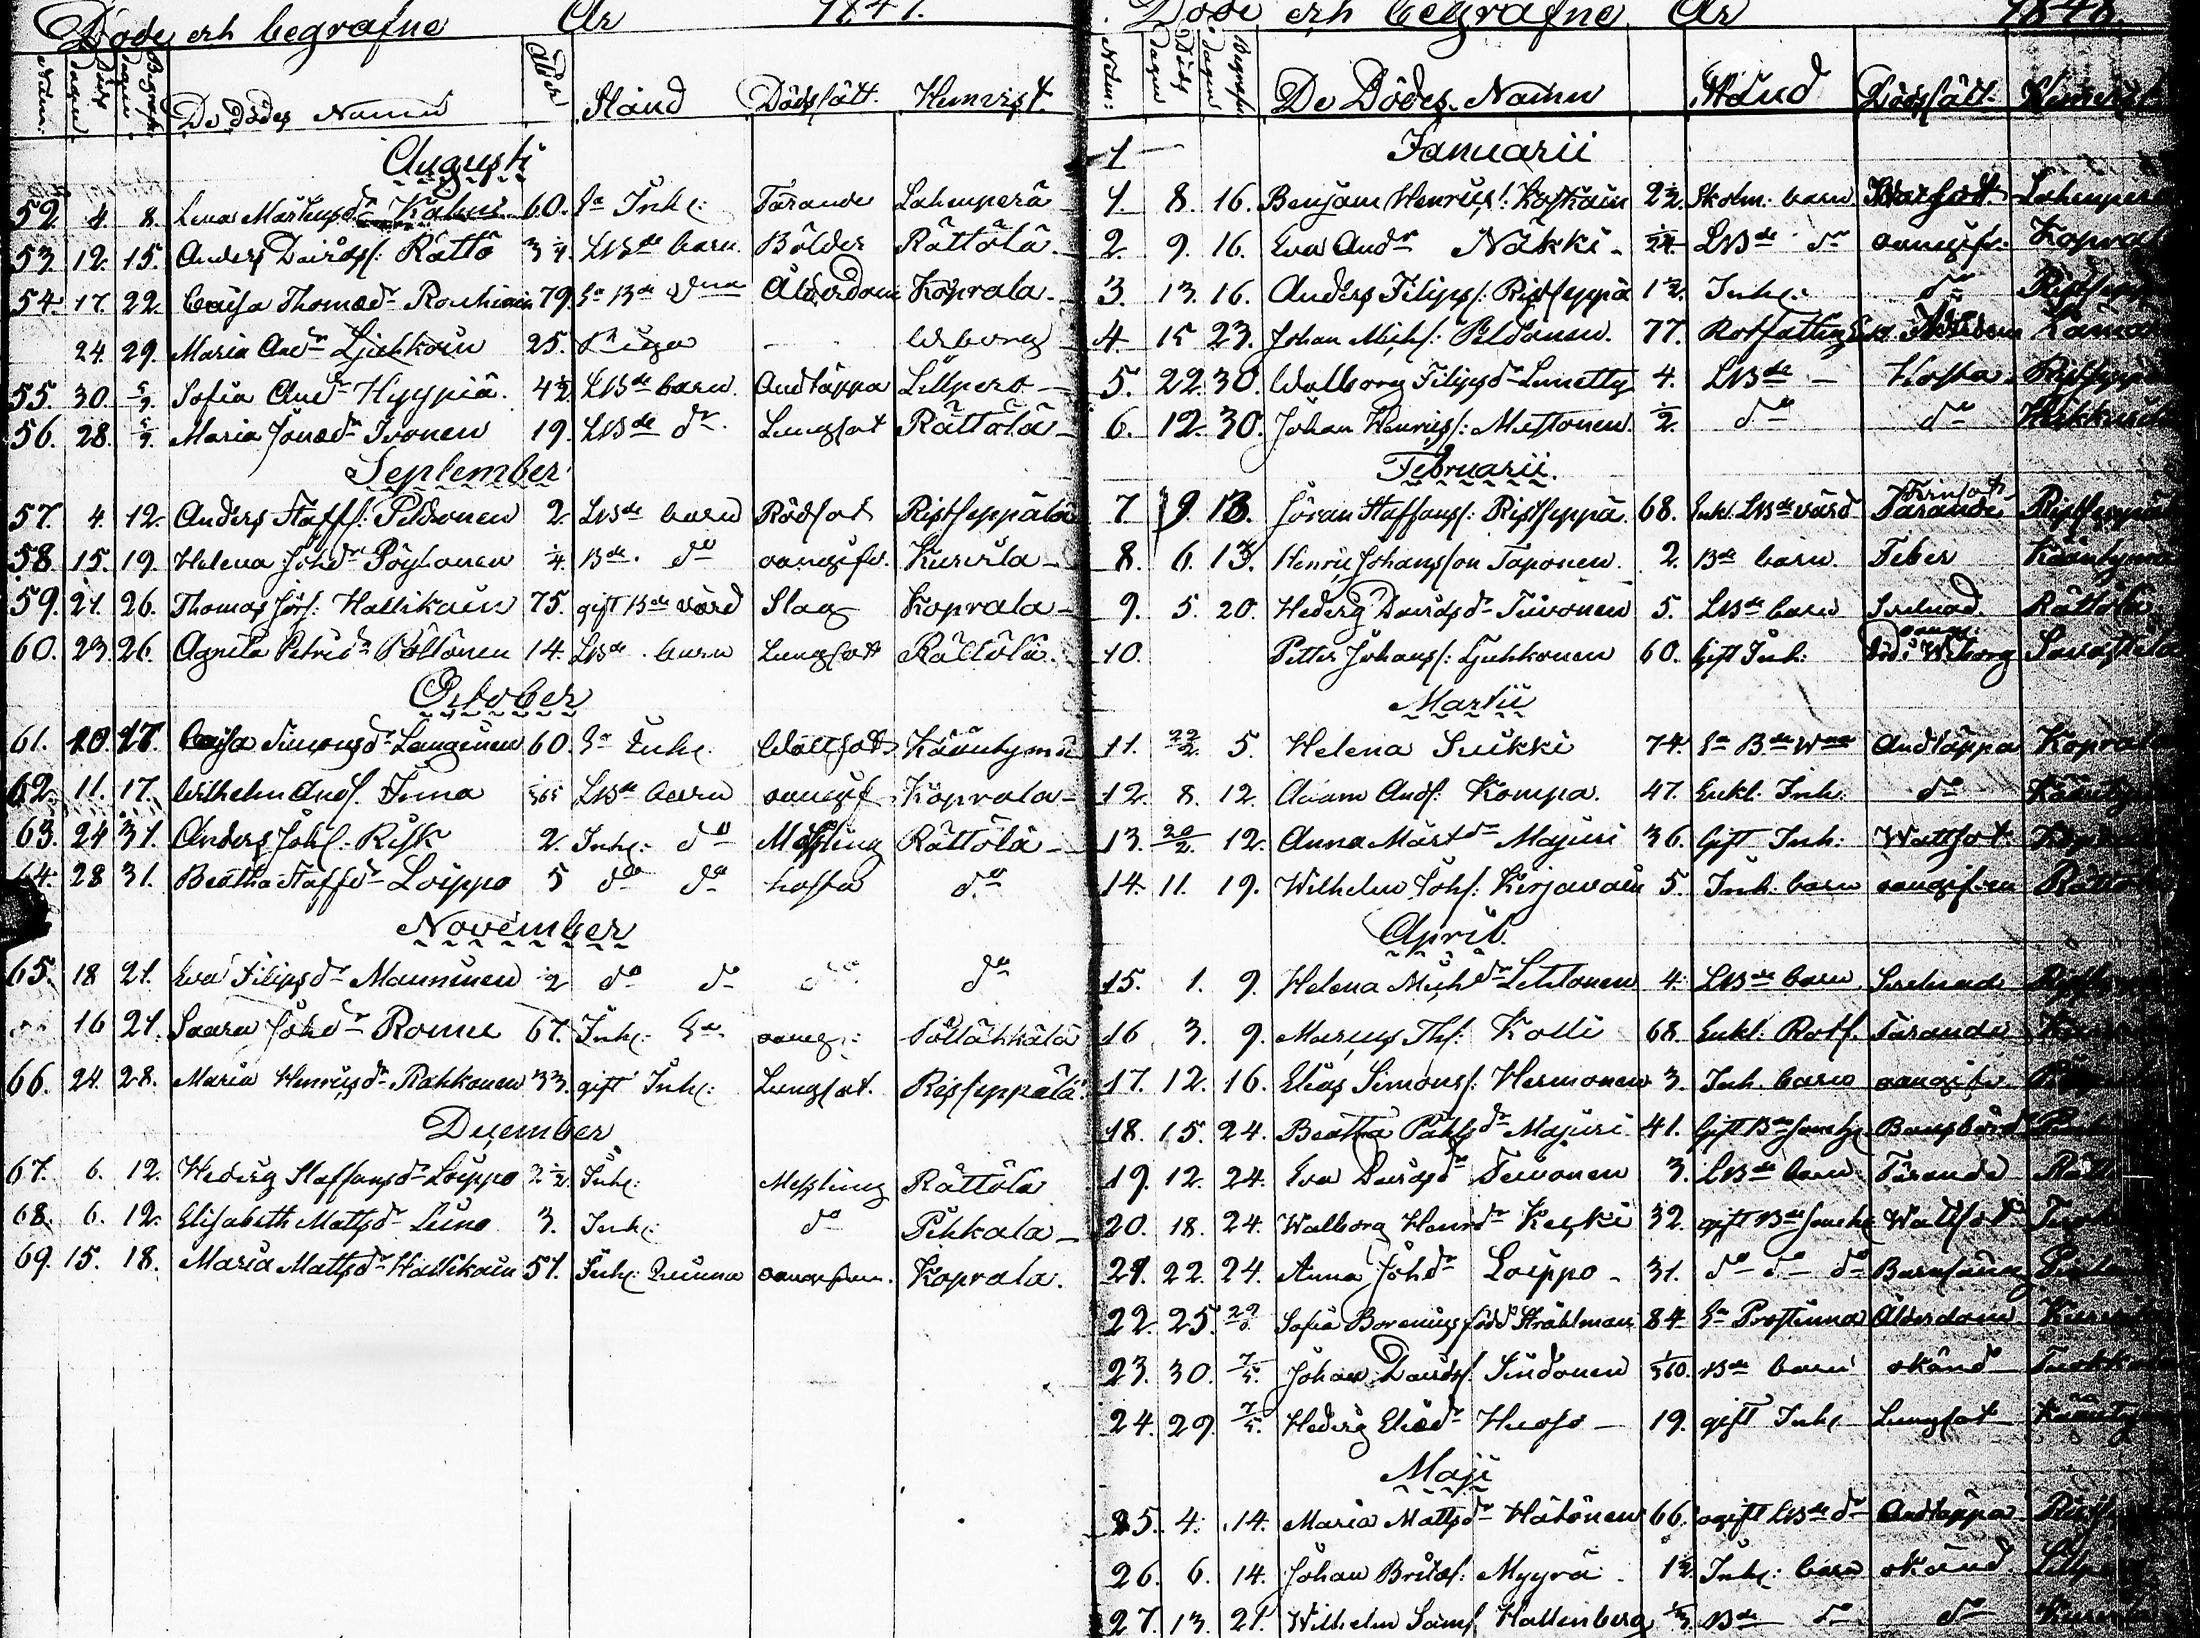 Döde och begrafne År 1847.
Num: Döds dagen Begrafn: dagen De Dödes Namn Ålder Stånd Dödssätt. Hemvist.
Augusti
52 4. 8. Lena Mårtensdr Kähni 60. Ea Inhs: Tärande Lahenperä
53. 12. 15. Anders Davidss: Rättö 3 1/4 LBde barn. Bölder Rättölä
54. 17. 22. Caisa Thomædr Rouhiain 79. Ea Bde Åldordom Koprala.
24. 29. Maria Andr Ljukkoin 25. Piga Wiborg
55. 30. 5/9. Sofia Andr Hyypiä. 4 1/2 LBde barn. Andtäppa Lillpero
56. 28. 5/9 Maria Jonædr Ivonen 19. LBde dr. Lungsot Rättölä
September
57. 4. 12. Anders Staffs: Peldonen 2. LBde barn Rödsot Ristseppälä
58. 15. 19. Helena Johdr Pöyhönen 1/4. Bde. do oangifv. Kurvila
59. 21. 26. Thomas Jörs: Hallikain 75. gift Bde värd Slag Koprala
60. 23. 26. Agneta Petridr Pöllönen 14. LBde. barn Lungsot Rättölä.
October
61. 10. 17. Caisa Simonsdr Languinen 60. Ea Inhs. Wattsot Kääntymä
62. 11. 17. Wilhelm Ands. Inna 1/365 LBde barn oangif Koprala
63. 24 31. Anders Johs. Risk 2. Inhs: do Messling Rättölä
64. 28 31. Beatha Staffdr Loippo 5 do do hosta do
November
65. 18 21. Eva Filipsdr Manninen 1/2 do do do do
16 21. Saara Johdr Romu 67. Inhs: Ea oang: Pöllähkälä
66. 24. 28. Maria Henricsdr Rokkonen 33. gift Inhs: Lungsot. Ristseppälä.
December
67. 6. 12. Hedvig Staffansdr Loippo 2 1/2. Inhs: Messling Rättölä
68. 6. 12. Elisabeth Mattsdr Luno 3. Inhs: do Pihkala
69. 15. 18. Maria Mattsdr Hallikain 57. Inhs: Qvinna oangifven. Koprala.
Döde och begrafne År 1848.
Num: Döds dagen Begrafn: dagen De Dödes Namn Stånd Dödssätt. Hemvist
1 Januarii
1 8. 16. Benjam Henrics: Koskain 2 1/2. barn Lahenperä
2. 9. 16. Eva Andr Näkki 1/24. LBde dr oangifv. Koprala
3. 13. 16. Anders Filips: Ristseppä 1 1/2. Inhs: do
4. 15 23. Johan Michs: Peldonen. 77.
5. 22. 30. Walborg Filipsdr Lunetty 4. LBde Hosta
6. 12. 30. Johan Henrics: Mustonen. 1/2. do do
Februarii.
7 9. 13. Jöran Staffanss: Ristseppä. 68. Inh. LBde värd Tärande Ristseppälä
8. 6. 13. Henric Johansson Taponen. 2. Bde barn. Feber Kääntymä
9. 5. 20. Hedvig Davidsdr Teivonen 5. LBde barn Rättölä
10. Petter Johanss: Ljukkonen 60. Gift Inh: död i Wiborg
Martii
11. 22/2. 5. Helena Suikki 74. Ea Bde Andtäppa Koprala
12. 8. 12. Adam Ands: Kompa. 47. Enkl. Inh. do
13. 20/2. 12. Anna Mårtdr Majuri 36. Gift Inh: Wattsot
14. 11. 19. Wilhelm Johs: Kirjavain 5. Inh. barn oangifven
April.
15. 1. 9. Helena Michdr Lehtonen 4. LBde barn
16 3. 9. Marcus Ths: Kolli 68. Enkl. Rotf. Tärande
17. 12. 16. Elias Simonss: Hermonen 3. Inh. barn oangifv.
18. 15. 24. Beatha Påhlsdr Majuri 41. Gift Bde
19. 12. 24. Eva Davidsdr Teivonen 3. LBde barn Tärande
20. 18. 24. Walborg Henrdr Keski 32. gift Bde Wattsot
21. 22. 24. Anna Johdr Loippo 31. do do do Barnsäng
22. 25. Sofia Borenius född Strählman 84 Ea Prostinna Ålderdom
23. 30. 7/5. Johan Davids: Sindonen 1/360. Bde barn okänd
24. 29. 7/5. Hedvig Eliædr Huoso 19. gift Inhs Lungsot
Maji
25. 4. 14. Maria Mattsdr Hätönen 66. ogift LBde dr Andtäppa
26. 6. 14. Johan Britas: Myyrä 1 1/2. Inhs: barn okänd
27. 13. 21. Wilhelm Sams. Hallenberg 1/3. Bde do do